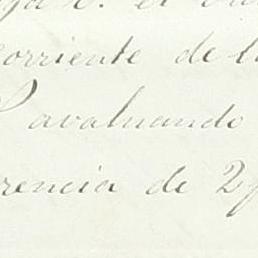 el
corriente de l
avaluando
rencia de 2